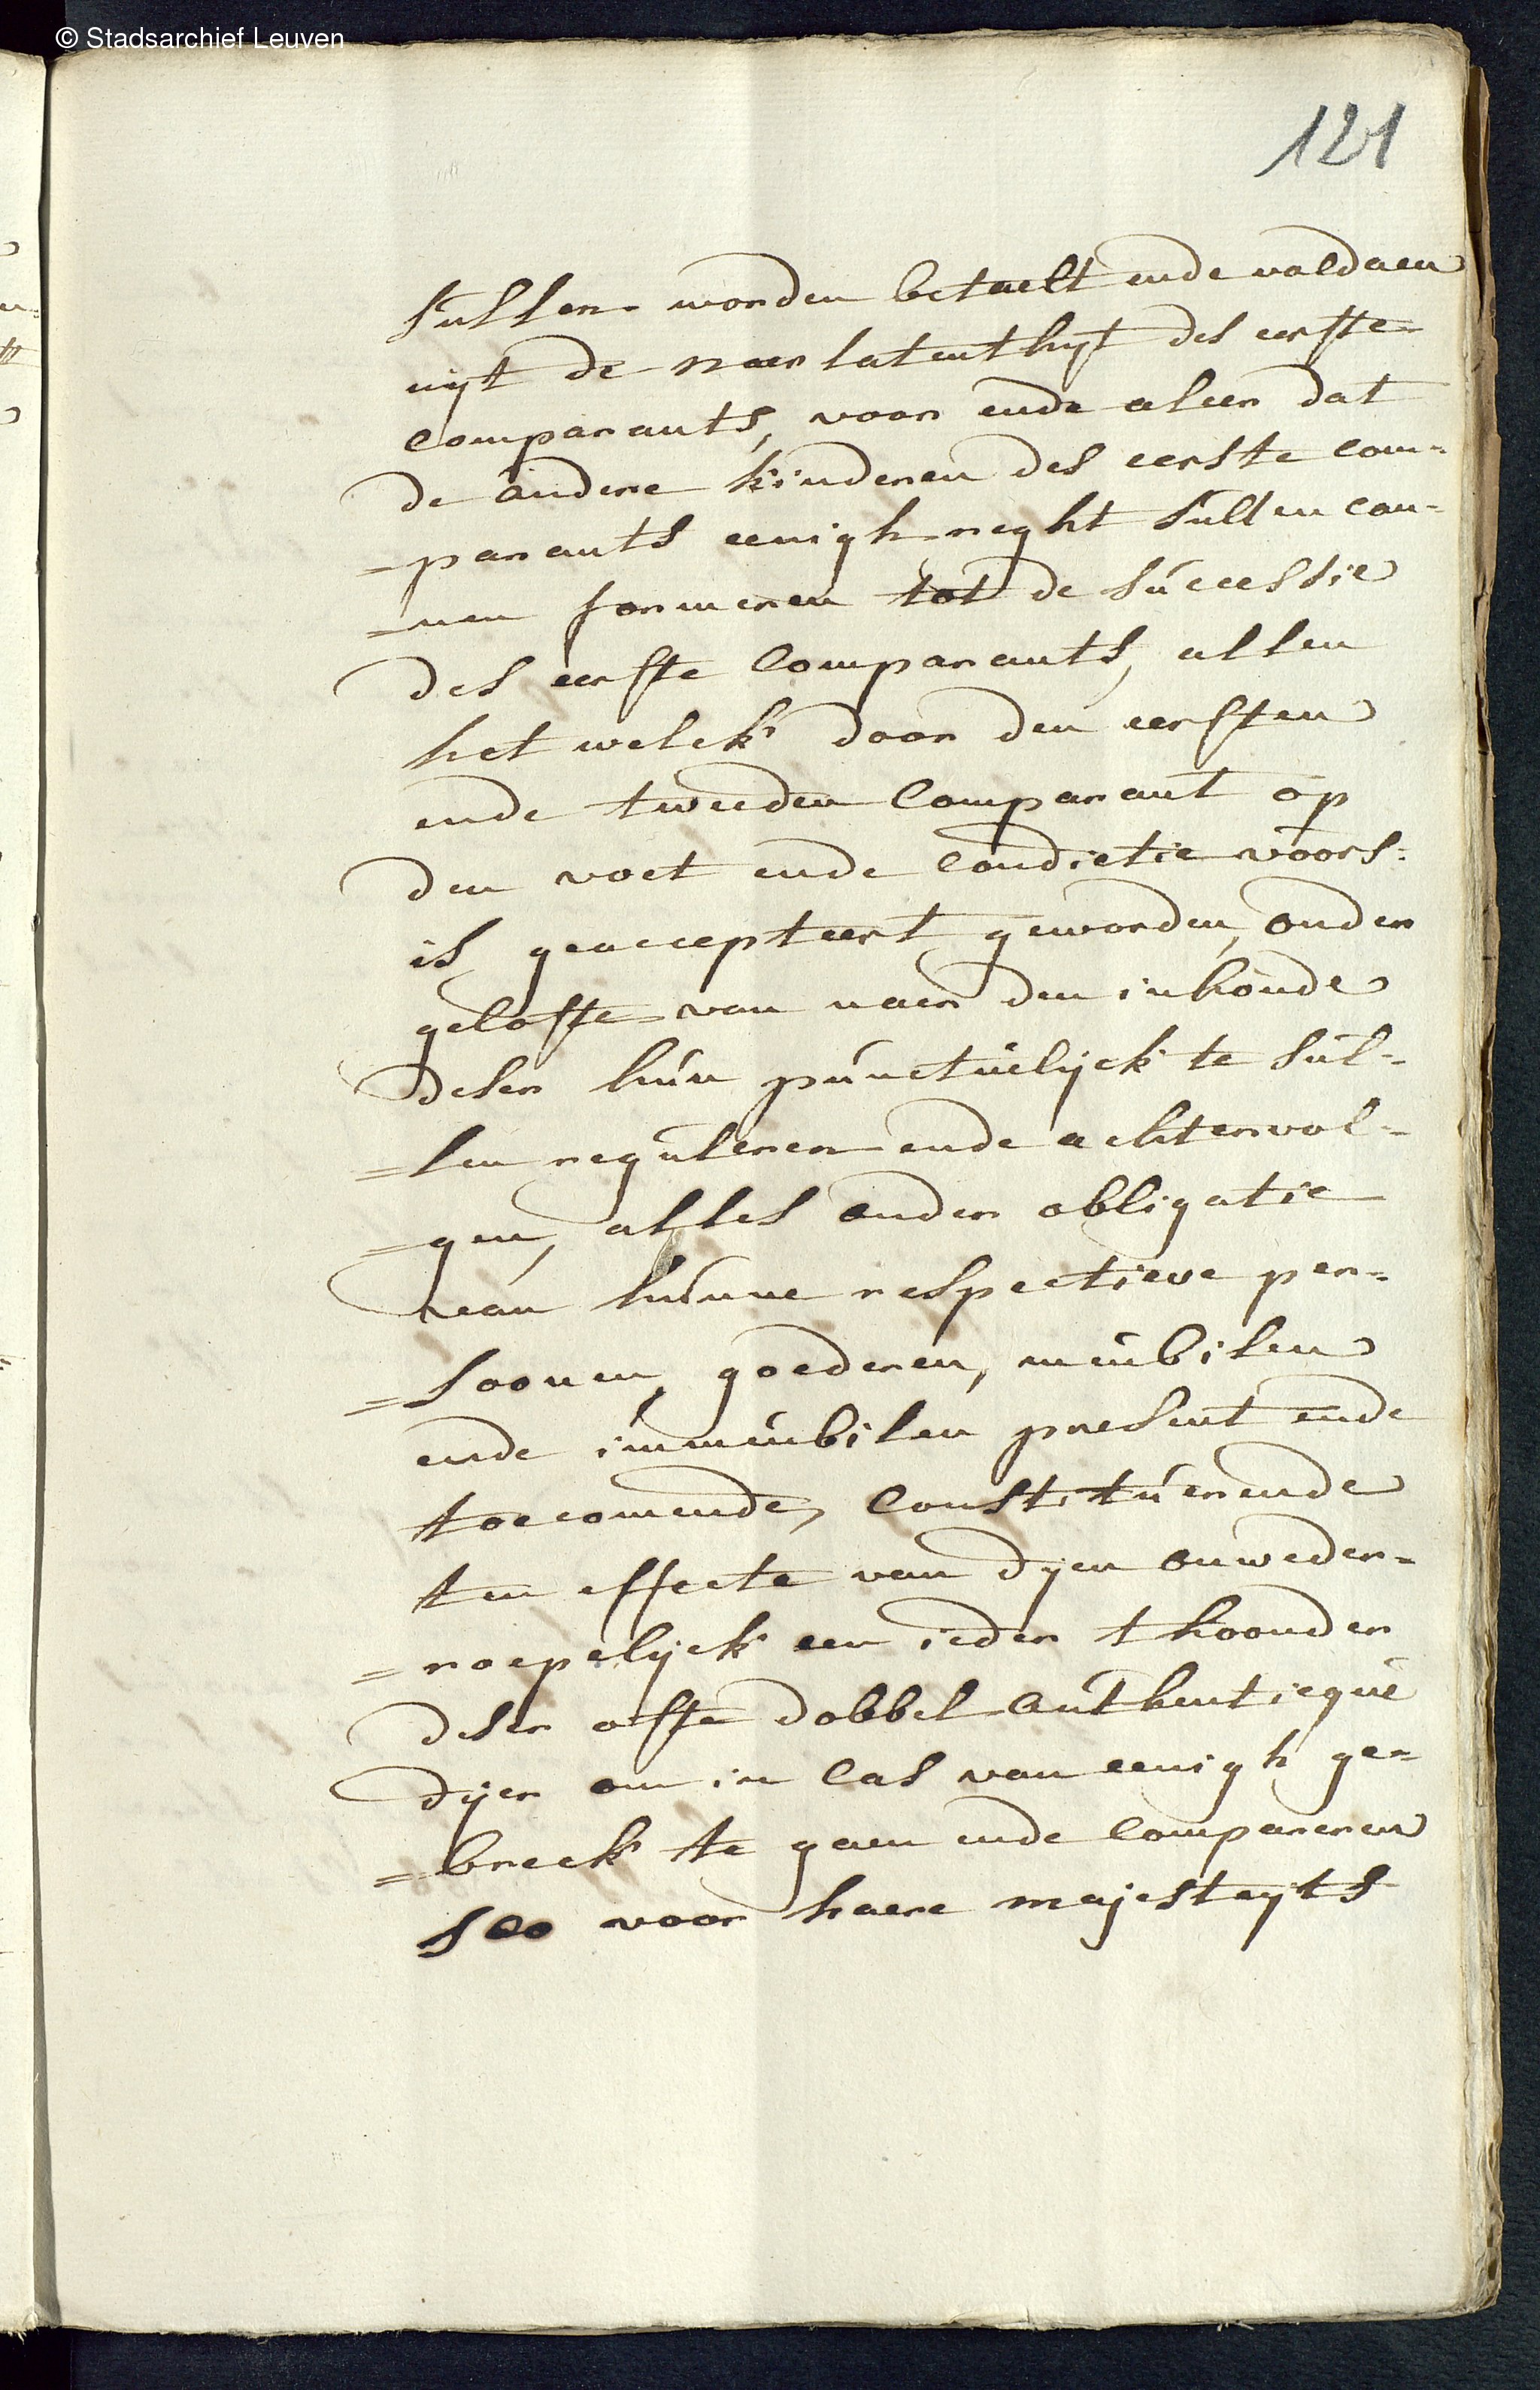 © Stadsarchief Leuven
121
sullen worden betaelt ende voldaen
uijt de naerlatentheijt des eerste
comparants, voor ende aleer dat
de andere kinderen des eerste com=
=parants eenigh reght sullen con=
=nen formeren tot de successie
des eerste comparants, allen
het welck door den eersten
ende tweeden comparant op
den voet ende condictie voors:
is geaccepteert geworden, onder
gelofte van naer den inhoude
deser hun punctuelijck te sul=
=len reguleren ende achtervol=
=gen, alles onder obligatie
van hunne respectieve per=
=soonen, goederen, meubilen
ende immeubilen present ende
toecomende, constituerende
ten effecte van dijen onweder=
=roepelijck een ieder thoonder
deser ofte dobbel authenticque
dijer om in cas van eenigh ge=
=breck te gaen ende compareren
soo voor haere majesteijts